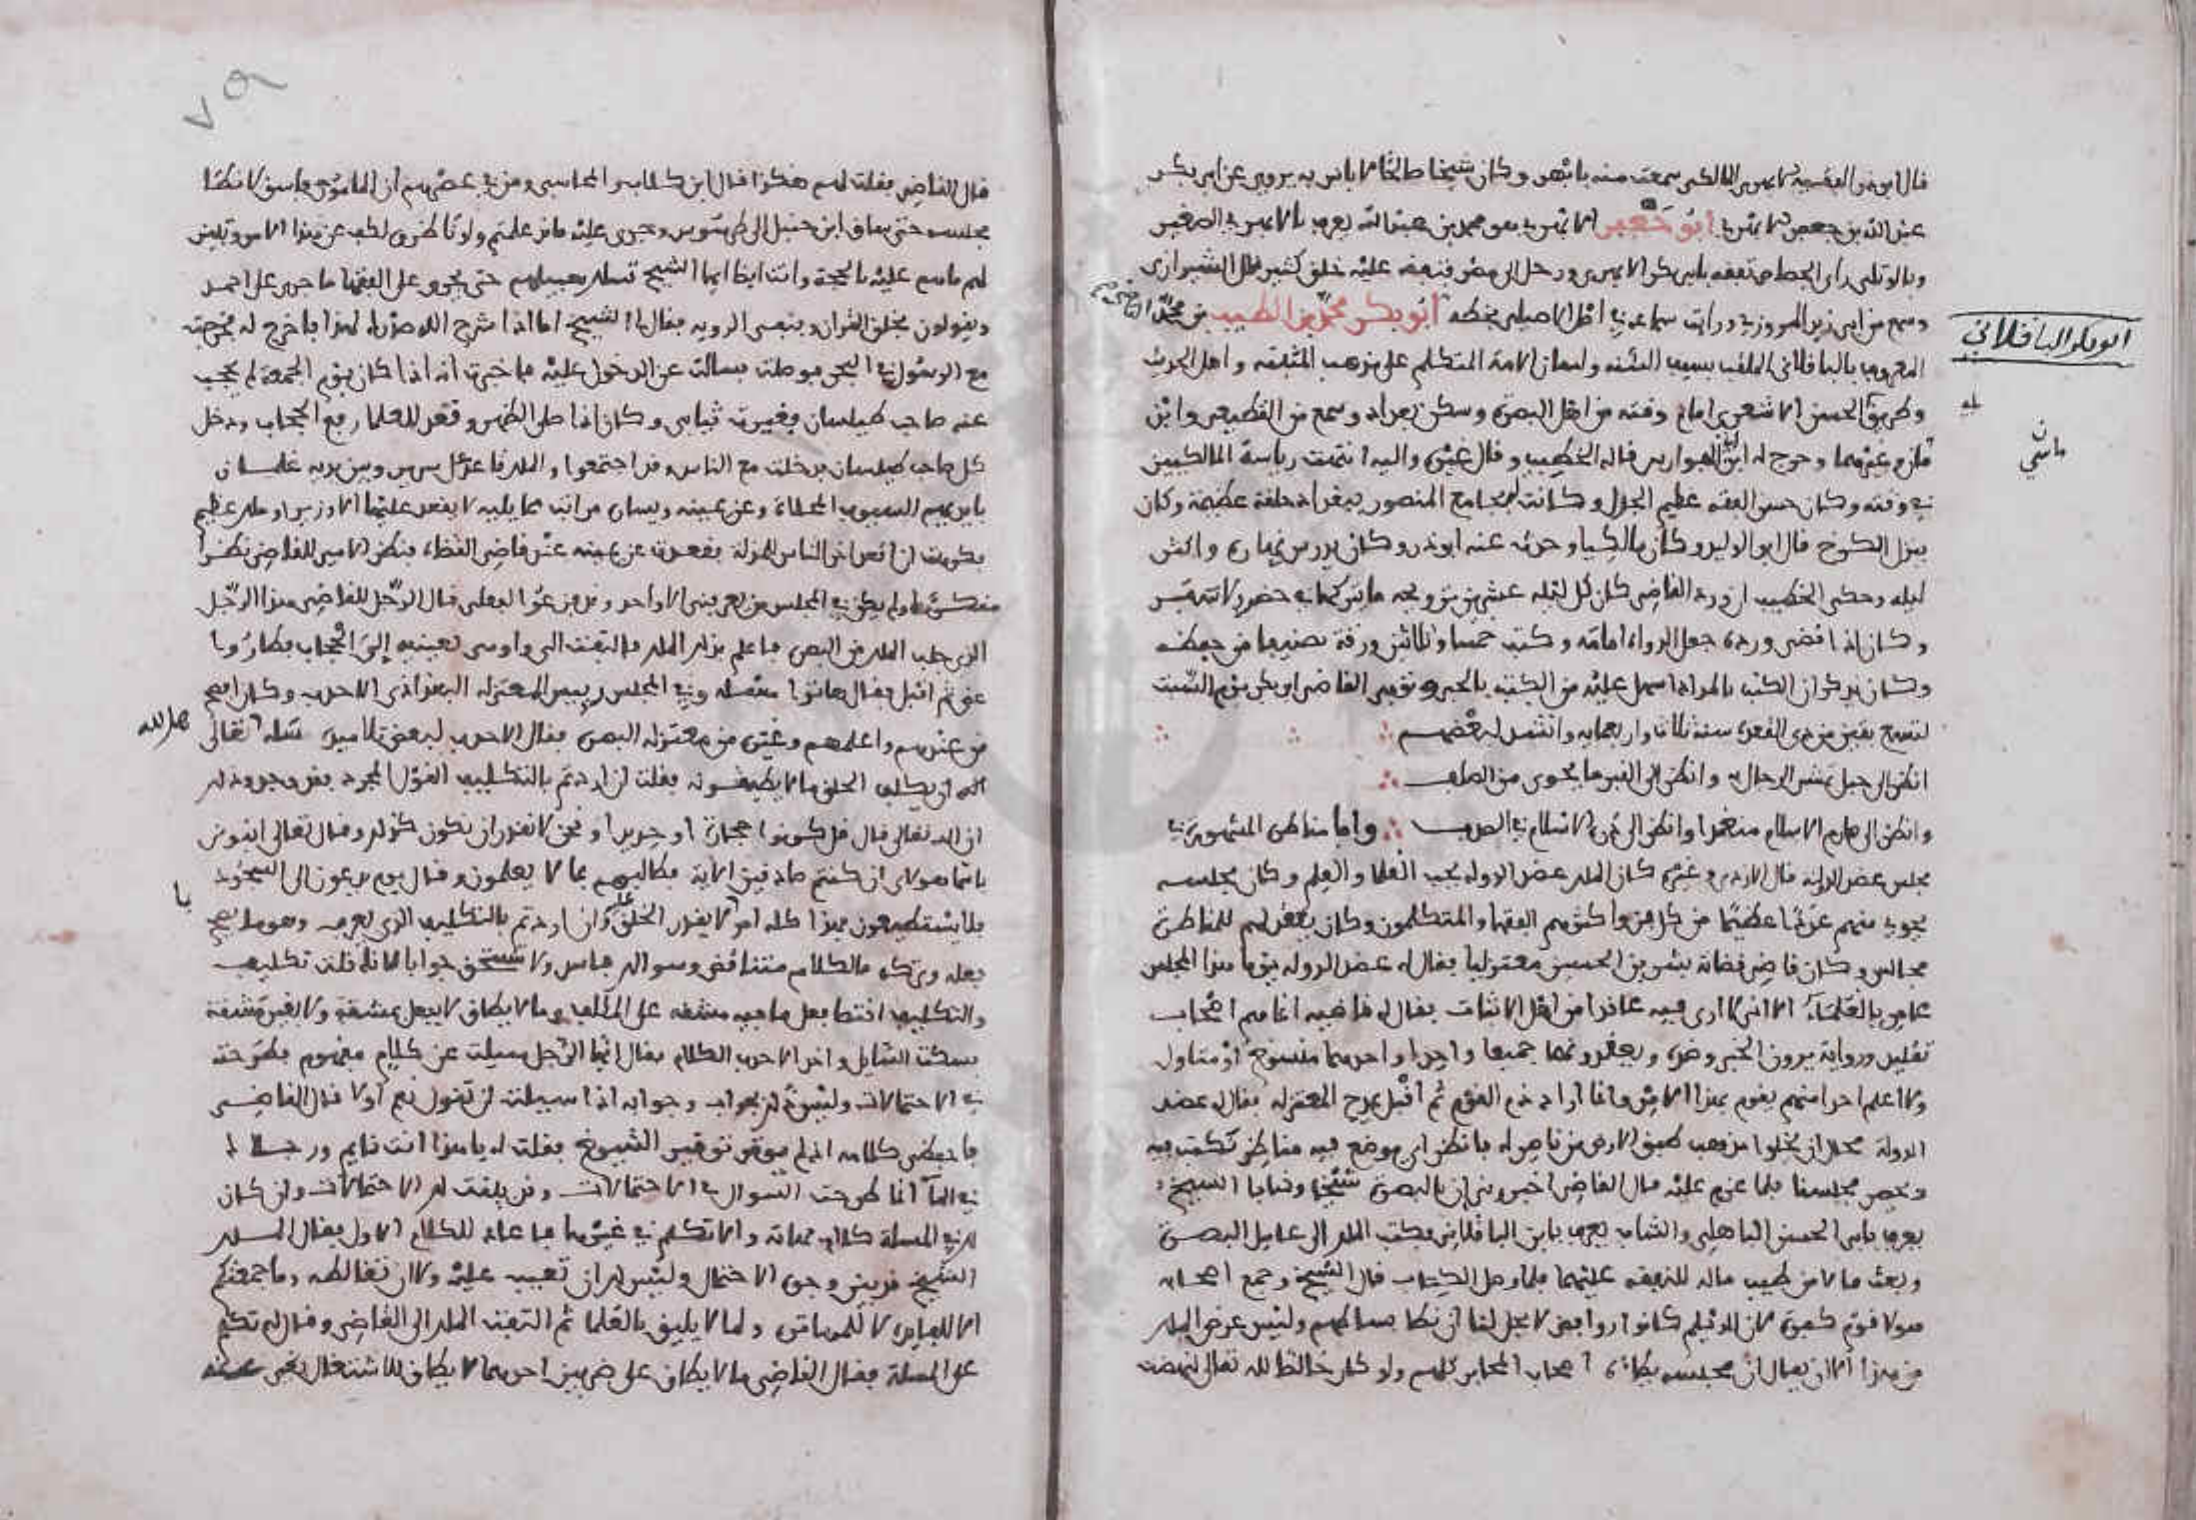 عبد الله بن جعفر الابهري أبو جعفر الابهري هو محمد بن عبد الله يعرف بالابهري الصغير
وبالوتلي تفقه بابي بكر الابهري ورحل الى مصر وتفقه عليه خلق كثير قال الشيرازي
وسمع من ابي زيد المروزي ورايت سماعه في اصل الاصيلي بخطه أبو بكر محمد بن الطيب بن محمد القاضي
المعروف بالباقلاني الملقب بسيف السنه ولسان الامة المتكلم على مذهب المثبته واهل الحديث
وطريق الحسن الاشعري امام وقته من اهل البصرة وسكن بغداد وسمع من القطيعي وابن
وغيرهما وخرج له ابن ابي الفوارس قاله الخطيب وقال غيره واليه انتهت رياسة المالكيين
في وقته وكان حسن الفقه عظيم الجدل وكانت له بجامع المنصور ببغداد حلقة عظيمة وكان
ينزل الكرخ قال ابو الوليد وكان مالكيا وحدث عنه ابو ذر وكان يدرس نهاره واكثر
ليله وحكى الخطيب ان ورد القاضي كان كل ليله عشرين ترويحه ما تركها في حضر ولا سفر
وكان اذا قضى ورده جعل الدواة امامه وكتب خمسا وثلاثين ورقة تصنيفا من حفظه
وكان يذكر ان الكتب بالمداد اسهل عليه من الكتب بالحبر وتوفي القاضي ابو بكر يوم السبت
لتسع بقين من ذي القعدة سنة ثلاث واربعمايه وانشد لبعضهم
انظر الى جبل تمشي الرجال به وانظر الى القبر ما يحوي من الصلف
وانظر الى صارم الاسلام منغمدا وانظر الى درة الاسلام في الصدف واما مناظرته المشهورة في
مجلس عضد الدولة قال الازدي وغيره كان الملك عضد الدوله يحب العلما والعلم وكان مجلسه
يحوي منهم عددا عظيما من كل فن واكثرهم الفقها والمتكلمون وكان يعقد لهم للمناظرة
مجالس وكان قاضي قضاته بشر بن الحسين معتزليا فقال له عضد الدوله يوما هذا المجلس
عامر بالعلماء الا اني لا ارى فيه عاقدا من اهل الاثبات فقال له قاضيه انما هم اصحاب
تقليد ورواية يروون الخبر وضده ويعتقدونهما جميعا واحدا واحدهما منسوخ او متاول
ولا اعلم احدا منهم يقوم بهذا الامر وانما اراد ذم القوم ثم اقبل يمدح المعتزله فقال له عضد
الدولة محال ان يخلوا مذهب طبق الارض من ناصر له فانظر اي موضع فيه مناظر نكتب فيه
ويحضر مجلسنا فلما عزم عليه قال القاضي اخبروني ان بالبصرة شيخا وشابا الشيخ
يعرف بابي الحسن الباهلي والشاب يعرف بابن الباقلاني فكتب الملك الى عامل البصرة
وبعث مالا من طيب ماله للنفقه عليهما فلما وصل الكتاب قال الشيخ وجمع اصحابه
هولا قوم كفرة لان الديلم كانوا روافض لا يحل لنا ان نطا بساطهم وليس غرض الملك
من هذا الا ان يقال ان مجلسه يطاه اصحاب المحابر كلهم ولو كان خالصا لله تعالى لنهضت
ابو بكر الباقلاني
قال القاضي فقلت لهم هكذا قال ابن كلاب والمحاسبي ومن في عصرهم ان المامون فاسق لا نطا
مجلسه حتى ساق ابن حنبل الى طرسوس وجرى عليه ما قد علمتم ولو ناظروه لكف عن هذا الامر وتبين
لهم ما هم عليه بالحجة وانت ايضا ايها الشيخ تسلك سبيلهم حتى يجري على الفقها ما جرى على احمد
ويقولون بخلق القران وبنفي الرويه فقال الشيخ اما اذا شرح الله صدرك لهذا فاخرج له فخرجت
مع الرسول في البحر فوصلت فسالت عن الدخول عليه فاخبرت انه اذا كان يوم الجمعة لم يحجب
عنه صاحب طيلسان فغيرت ثيابي وكان اذا صلى الظهر وقعد للعلما رفع الحجاب ودخل
كل صاحب طيلسان فدخلت مع الناس وقد اجتمعوا والملك قاعد على سرير وبين يديه غلمان
بايديهم السيوف المحلاة وعن يمينه ويساره مراتب مما يليه لا يقعد عليها الا وزير او ملك عظيم
فكرهت ان اقعد اخر الناس للمذلة فقعدت عن يمينه عند قاضي القضاة فنظر الامير للقاضي نظر
منكر ولم يكن في المجلس من يعرفني الا واحد فقال الرجل للقاضي هذا الرجل
الذي طلب الملك من البصرة فاعلم بذلك الملك فالتفت الي واومى بعينيه إلى الحجاب فطاروا
في المجلس رييس المعتزله البغداذي الاحدب وكان افصح
من عندهم واعلمهم وغيره من معتزله البصرة فقال الاحدب لبعض تلاميذه سله هل لله تعالى
ان يكلف الخلق ما لا يطيقونه فقلت ان اردتم بالتكليف القول المجرد فقد وجد ذلك
ان الله تعالى قال قل كونوا حجارة او حديدا ونحن لا نقدر ان نكون كذلك وقال تعالى انبوني
باسما هولاي ان كنتم صادقين الاية فطالبهم بما لا يعلمون وقال يوم يدعون الى السجود
فلا يستطيعون فهذا كله امر لا يقدر الخلق عليه وان اردتم بالتكليف الذي نعرفه وهو ما يصح
فعله وتركه فالكلام متناقض وسوالك فاسد ولا تستحق جوابا لانك قلت تكليف
والتكليف اقتضا فعل ما فيه مشقه على المكلف وما لا يطاق لا يفعل بمشقة ولا لغير مشقة
فسكت السايل واخذ الاحدب الكلام فقال ايها الرجل سيلت عن كلام مفهوم فطرحته
في الاحتمالات وليس ذلك بجواب وجوابه اذا سيلت ان تقول نعم او لا قال القاضي
فاحفظني كلامه اذ لم يوقرني توقير الشيوخ فقلت له يا هذا انت نايم ورجلاك
في الما انما طرحت السوال في الاحتمالات وقد بينت لك الاحتمالات فان كان
لك في المسلة كلام فهاته والا تكلم في غيرها فاعاد للكلام الاول فقال الملك
الشيخ قد بين وجوه الاحتمال وليس لك ان تعيب عليه ولا ان تغالطه وما جمعتكم
الا للفايدة لا للمهاترة ولما لا يليق بالعلما ثم التفت الملك الى القاضي وقال له تكلم
على المسلة فقال القاضي ما لا يطاق على ضربين احدهما لا يطاق للاشتغال بضده عنه